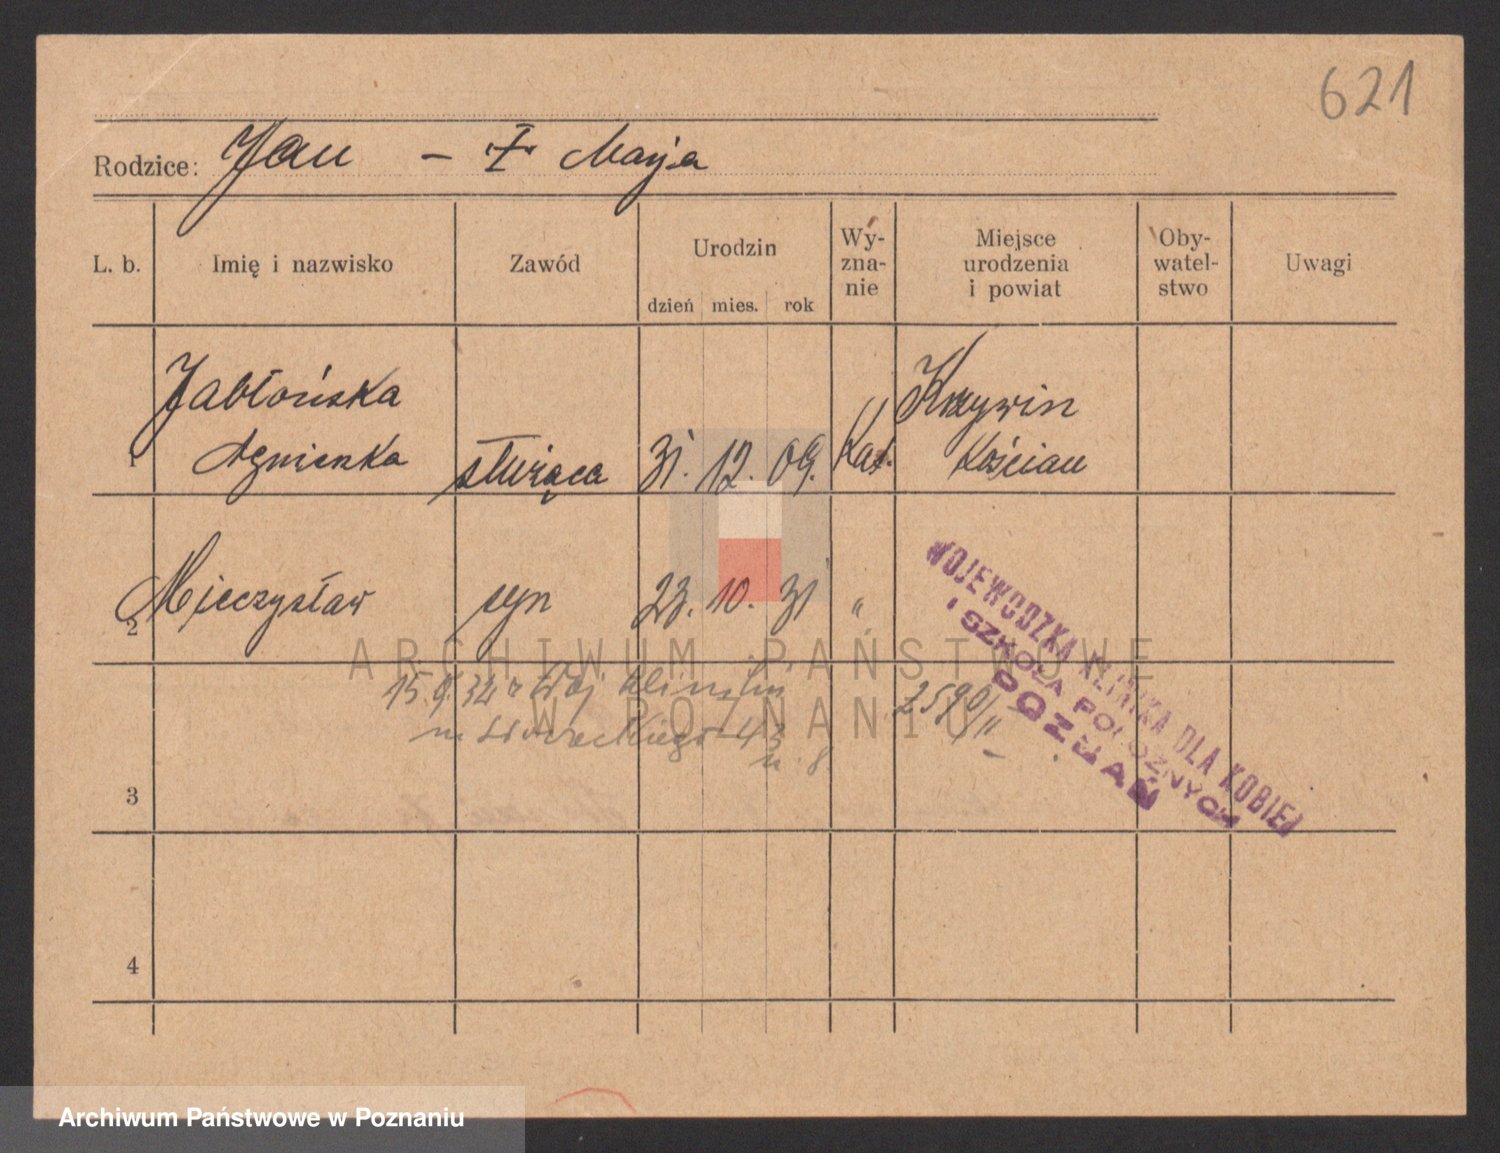 621
Rodzice: Jan - I Marja
L. b. Imię i nazwisko Zawód Urodzin dzień mies. rok Wy-zna-nie Miejsce urodzenia i powiat Oby-watel-stwo Uwagi
Jabłońska Krzywin
1 Agnieszka służąca 31. 12. 09. Kat. Kościan
2 Mieczysław syn 23. 10. 31 "
WOJEWÓDZKA KLINIKA DLA KOBIET
I SZKOŁA POŁOŻNYCH
POZNAŃ
ARCHIWUM PAŃSTWOWE
W POZNANIU
15.9.34 z Woj. 2590/II
43
3 8.
4
Archiwum Państwowe w Poznaniu